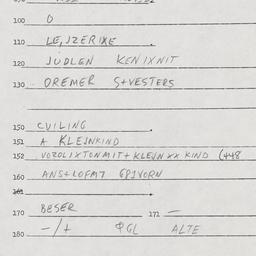 100 O
110 LEIJZERIXE
120 JUDLEN KENIXNIT
130 OREMER S+VESTERS
150 CVILING
151 A KLEJNKIND
152 VOZOLIXTONMIT+KLEJNXXKIND (448
160 ANS+LOFM7
161
170 BESER 171 —
180 -/+ ALTE